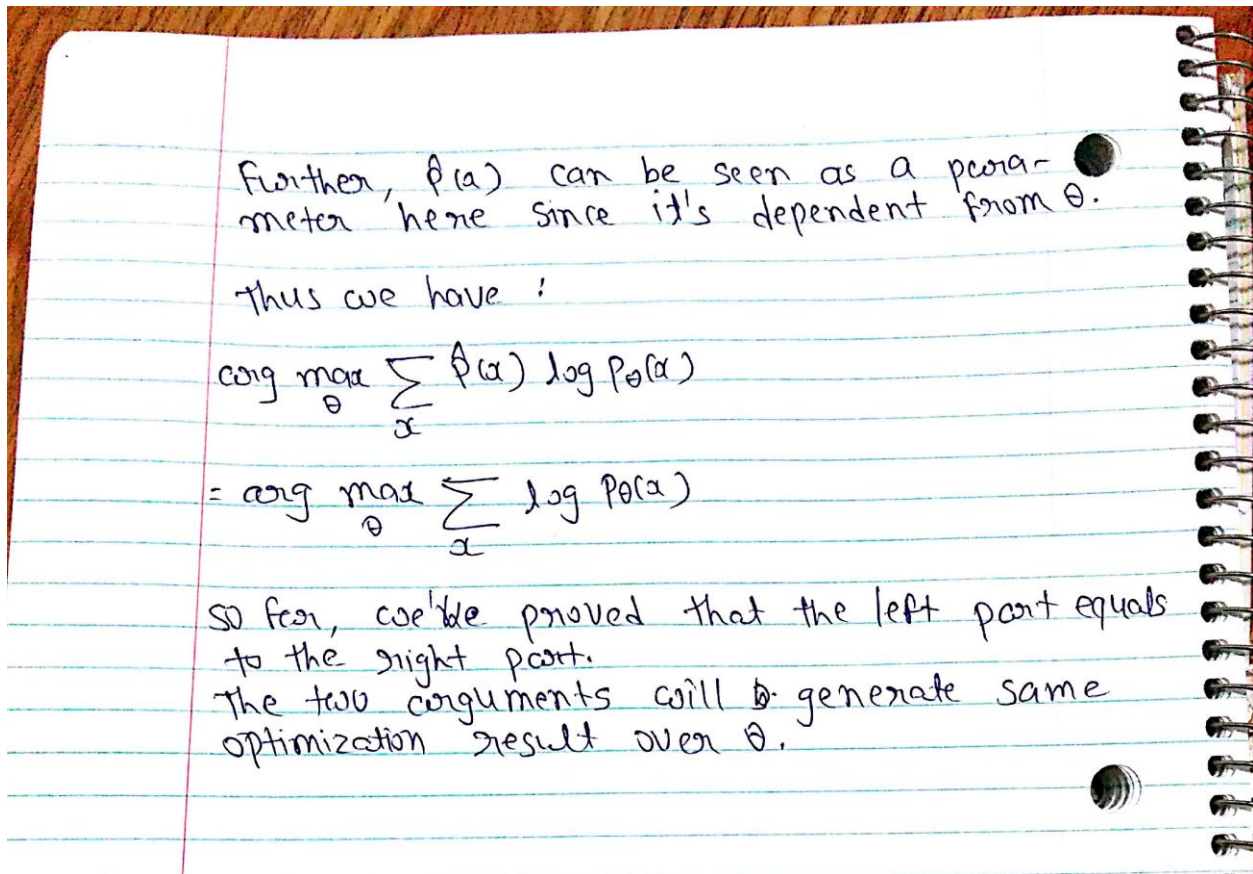 Further, p̂(x) can be seen as a para-
meter here since it's dependent from θ.
Thus we have :
arg max_θ ∑_x p̂(x) log pθ(x)
= arg max_θ ∑_x log pθ(x)
so far, we've proved that the left part equals
to the right part.
The two arguments will generate same
optimization result over θ.